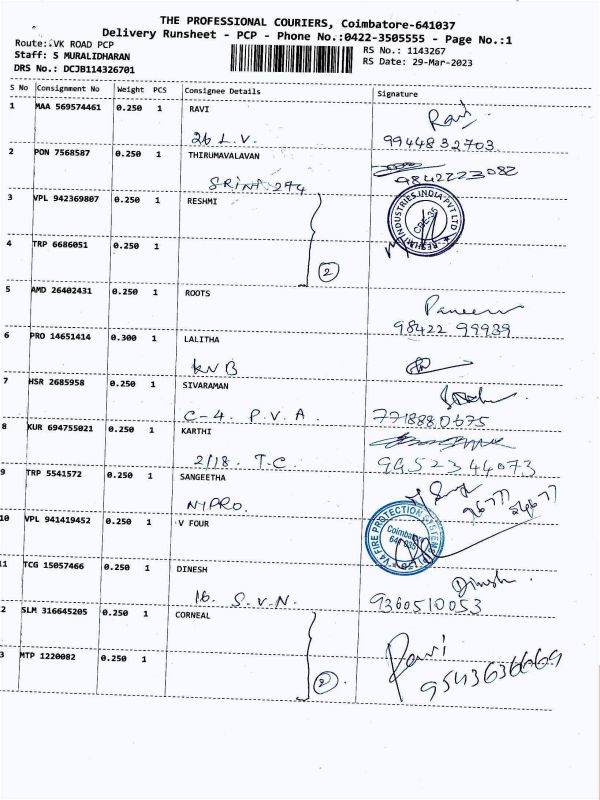 THE PROFESSIONAL COURIERS, Coimbatore-641037
Delivery Runsheet - PCP - Phone No.:0422-3505555 - Page No.:1
Route:.VK ROAD PCP
RS No.: 1143267
Staff: S MURALIDHARAN
RS Date: 29-Mar-2023
DRS No.: DCJB114326701
S No Consignment No Weight PCS Consignee Details Signature
1 MAA 569574461 0.250 1 RAVI Ravi
26 L.V. 9944832703
2 PON 7568587 0.250 1 THIRUMAVALAVAN
SRINI 274 9842223082
3 VPL 942369807 0.250 1 RESHMI
RESHMI INDUSTRIES INDIA PVT LTD
CBE-35
4 TRP 6686051 0.250 1
2
5 AMD 26402431 0.250 1 ROOTS
98422 99939
6 PRO 14651414 0.300 1 LALITHA
KNB
7 HSR 2685958 0.250 1 SIVARAMAN
C-4. P.V.A. 7718880675
8 KUR 694755021 0.250 1 KARTHI
2/18. T.C. 9952344073
9 TRP 5541572 0.250 1 SANGEETHA
NIPRO.
10 VPL 941419452 0.250 1 V FOUR
V4 FIRE PROTECTION SYSTEMS
Coimbatore
641 035
11 TCG 15057466 0.250 1 DINESH Dinesh
16. S.V.N. 9360510053
2 SLM 316645205 0.250 1 CORNEAL
3 MTP 1220082 0.250 1 Ravi
2. 9543636669